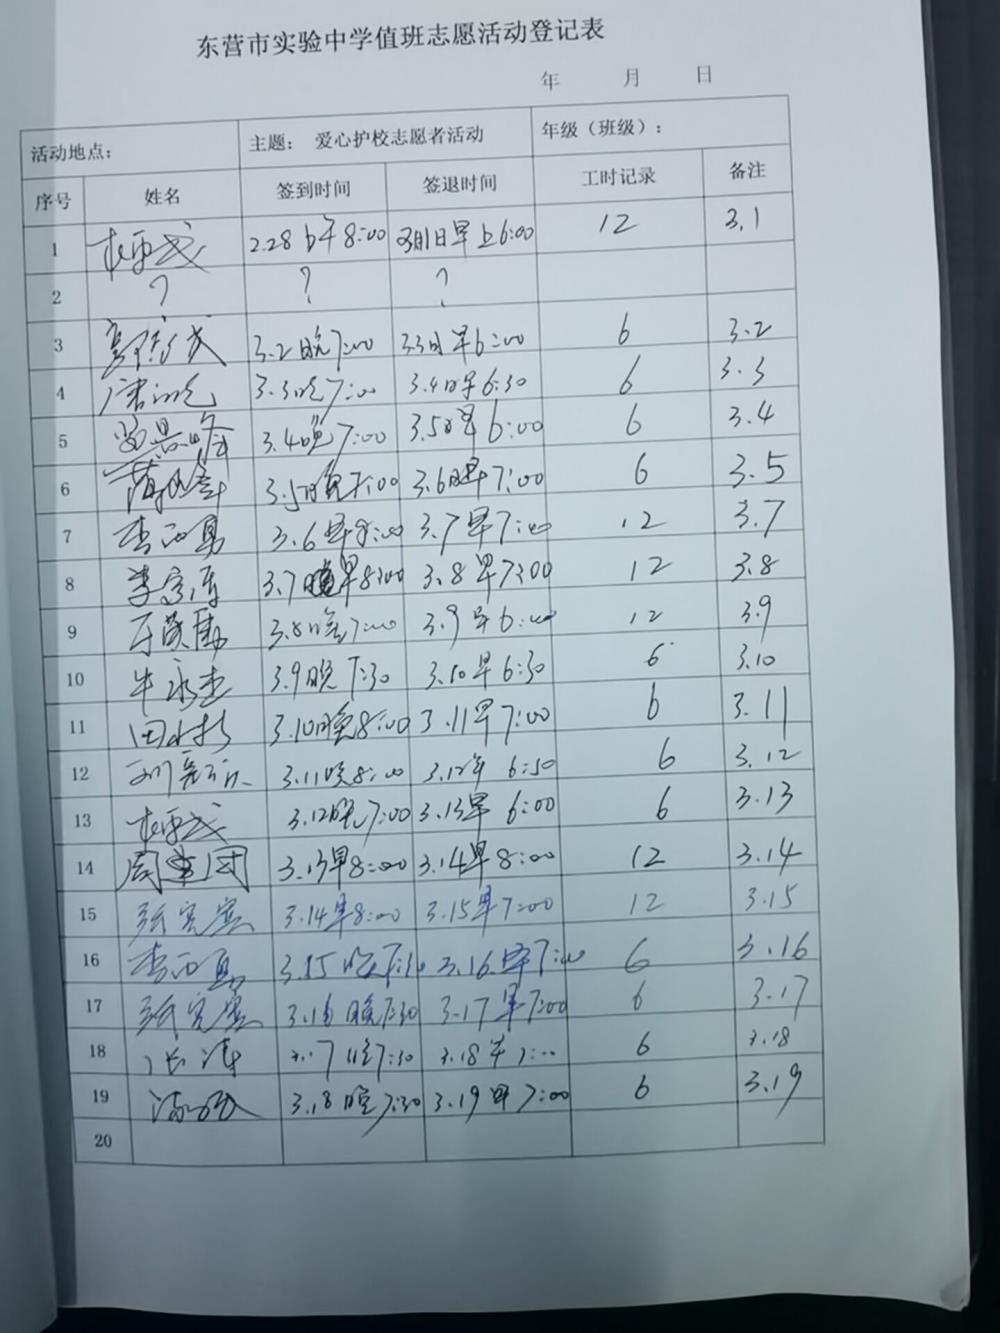 东营市实验中学值班志愿活动登记表
年 月 日
活动地点: 主题: 爱心护校志愿者活动 年级（班级）:
序号 姓名 签到时间 签退时间 工时记录 备注
1 2.28 下午8:00 3月1日早上6:00 12 3.1
2 ? ? ?
3 3.2日晚7:00 3.3日早6:00 6 3.2
4 3.3晚7:00 3.4日早6:30 6 3.3
5 3.4晚7:00 3.5日早6:00 6 3.4
6 3.5日晚7:00 3.6日早7:00 6 3.5
7 李西勇 3.6早8:00 3.7早7:00 12 3.7
8 3.7早8:00 3.8早7:00 12 3.8
9 3.8晚7:00 3.9早6:00 12 3.9
10 牛永杰 3.9晚7:30 3.10早6:30 6 3.10
11 3.10晚8:00 3.11早7:00 6 3.11
12 3.11晚8:00 3.12早 6:50 6 3.12
13 3.12晚7:00 3.13早 6:00 6 3.13
14 3.13早8:00 3.14早8:00 12 3.14
15 3.14早8:00 3.15早7:00 12 3.15
16 李西勇 3.15晚7:30 3.16早7:00 6 3.16
17 3.16晚7:30 3.17早7:00 6 3.17
18 3.17晚7:30 3.18早7:00 6 3.18
19 3.18晚7:30 3.19早7:00 6 3.19
20